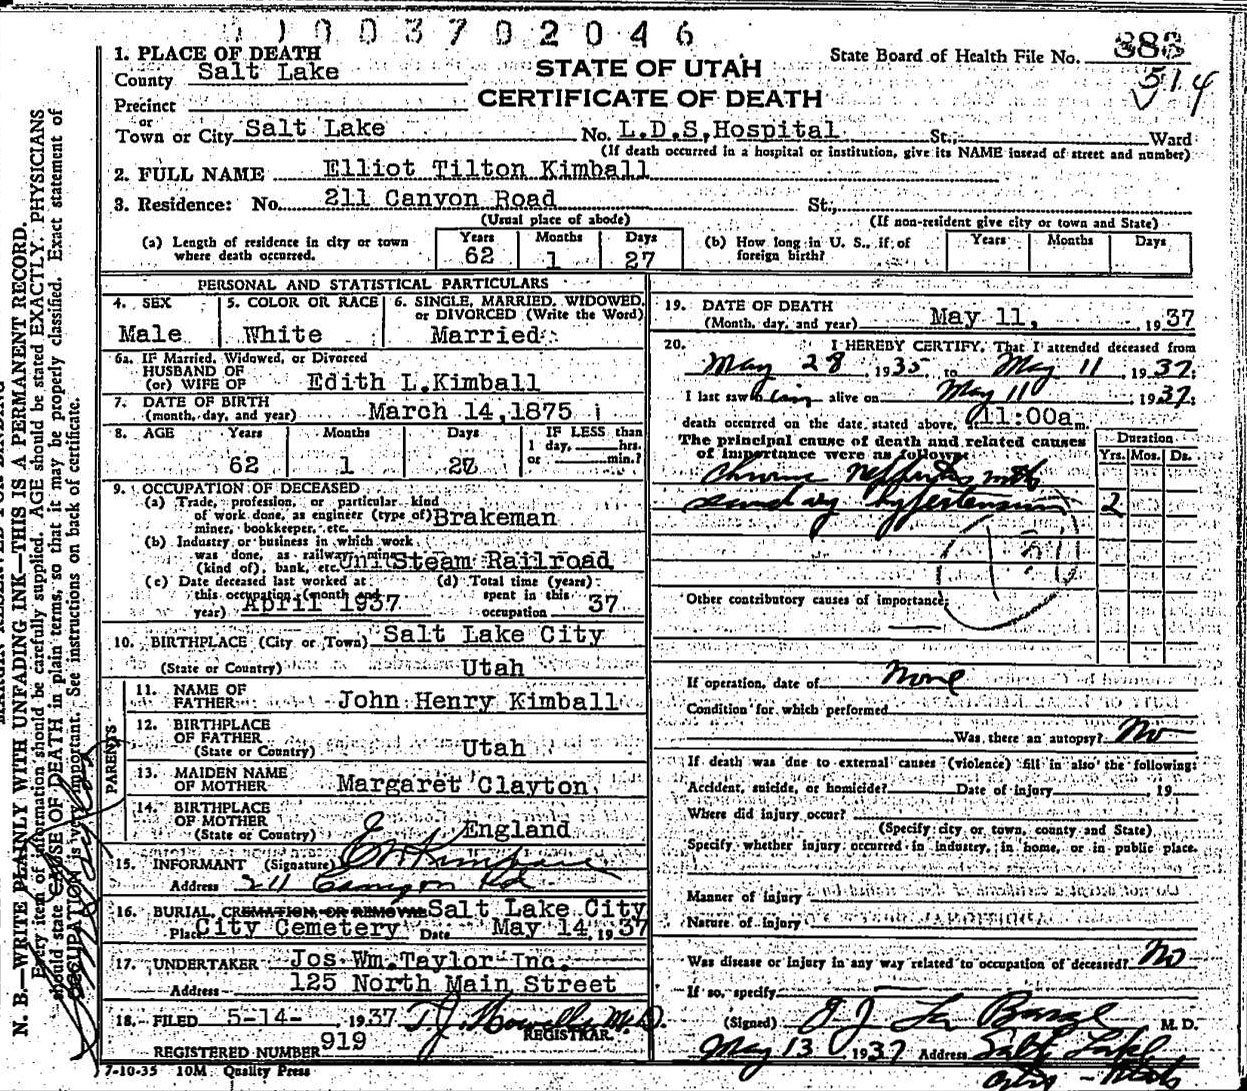 0100370 2046
1. PLACE OF DEATH
County Salt Lake
STATE OF UTAH
CERTIFICATE OF DEATH
State Board of Health File No. 388
514
Precinct
or
Town or City Salt Lake No. L.D.S, Hospital St., Ward
(If death occurred in a hospital or institution, give its NAME insead of street and number)
2. FULL NAME Elliot Tilton Kimball
3. Residence: No. 211 Canyon Road St.,
(Usual place of abode) (If non-resident give city or town and State)
(a) Length of residence in city or town where death occurred. Years 62 Months 1 Days 27
(b) How long in U. S., if of foreign birth? Years Months Days
PERSONAL AND STATISTICAL PARTICULARS
4. SEX Male
5. COLOR OR RACE White
6. SINGLE, MARRIED, WIDOWED, or DIVORCED (Write the Word) Married
6a. IF Married, Widowed, or Divorced
HUSBAND OF
(or) WIFE OF Edith L. Kimball
7. DATE OF BIRTH
(month, day, and year) March 14, 1875
8. AGE Years 62 Months 1 Days 27 IF LESS than 1 day, hrs. or min.?
9. OCCUPATION OF DECEASED
(a) Trade, profession, or particular kind
of work done, as engineer (type of) Brakeman
miner, bookkeeper, etc.
(b) Industry or business in which work
was done, as railway, mine
(kind of), bank, etc. Steam Railroad
(c) Date deceased last worked at this occupation (month and year) April 1937
(d) Total time (years) spent in this occupation 37
10. BIRTHPLACE (City or Town) Salt Lake City
(State or Country) Utah
PARENTS
11. NAME OF FATHER John Henry Kimball
12. BIRTHPLACE OF FATHER
(State or Country) Utah
13. MAIDEN NAME OF MOTHER Margaret Clayton
14. BIRTHPLACE OF MOTHER
(State or Country) England
15. INFORMANT (Signature)
Address 211 Canyon Rd
16. BURIAL, CREMATION, OR REMOVAL Salt Lake City
Place City Cemetery Date May 14, 1937
17. UNDERTAKER Jos Wm. Taylor Inc.
Address 125 North Main Street
18. FILED 5-14- 1937
REGISTRAR.
REGISTERED NUMBER 919
7-10-35 10M Quality Press
19. DATE OF DEATH
(Month, day, and year) May 11, 1937
20. I HEREBY CERTIFY, That I attended deceased from
May 28, 1935, to May 11, 1937;
I last saw him alive on May 11 1937;
death occurred on the date stated above, at 11:00a m.
The principal cause of death and related causes
of importance were as follows:
Duration
Yrs. Mos. Ds.
chronic nephritis with
secondary hypertension 2
131
Other contributory causes of importance:
If operation, date of None
Condition for which performed
Was there an autopsy? No
If death was due to external causes (violence) fill in also the following:
Accident, suicide, or homicide? Date of injury , 19
Where did injury occur?
(Specify city or town, county and State)
Specify whether injury occurred in industry, in home, or in public place.
Manner of injury
Nature of injury
Was disease or injury in any way related to occupation of deceased? No
If so, specify
(Signed) M. D.
May 13 1937 Address Salt Lake
City - Utah
N. B.—WRITE PLAINLY WITH UNFADING INK—THIS IS A PERMANENT RECORD.
Every item of information should be carefully supplied. AGE should be stated EXACTLY. PHYSICIANS
should state CAUSE OF DEATH in plain terms, so that it may be properly classified. Exact statement of
OCCUPATION is very important. See instructions on back of certificate.